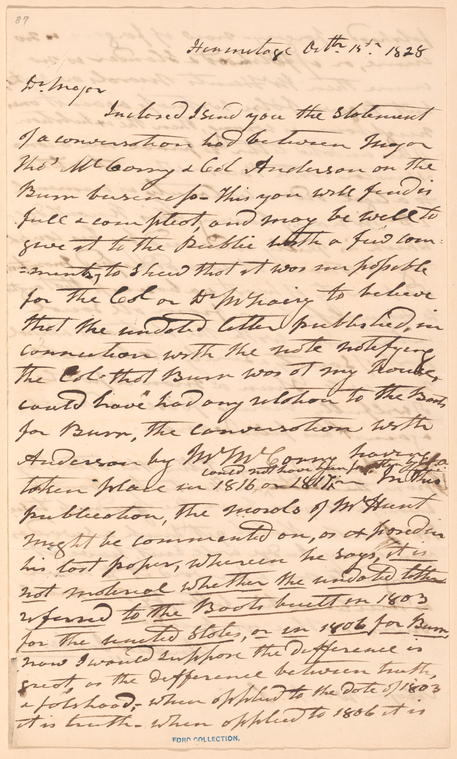 87
Hermitage Octbr 15th 1828
Dr Major
Inclosed I send you the Statement
of a conversation had between Major
Thos McCorry & Col Anderson on the
Burr business. This you will find is
full & compleat, and may be well to
give it to the Public with a few com=
=ments, to shew that it was impossible
for the Col or Dr to believe
that the undated letter published, in
connection with the note notifying
the Col that Burr was at my House,
could have had any relation to the Boats
for Burr, the conversation with
Anderson by Mr McCorry having
could not have been
taken place in 1816 or 1817. In this
publication, the morals of Mr Hunt
might be commented on, as exposed in
his last paper, wherein he says, it is
not material whether the undated letter
referred to the Boats built in 1803
for the united States, or in 1806 for Burr
now I would suppose the difference is
great, as the difference between truth,
& falshood - when applied to the date of 1803
it is truth - when applied to 1806 it is
FORD COLLECTION.